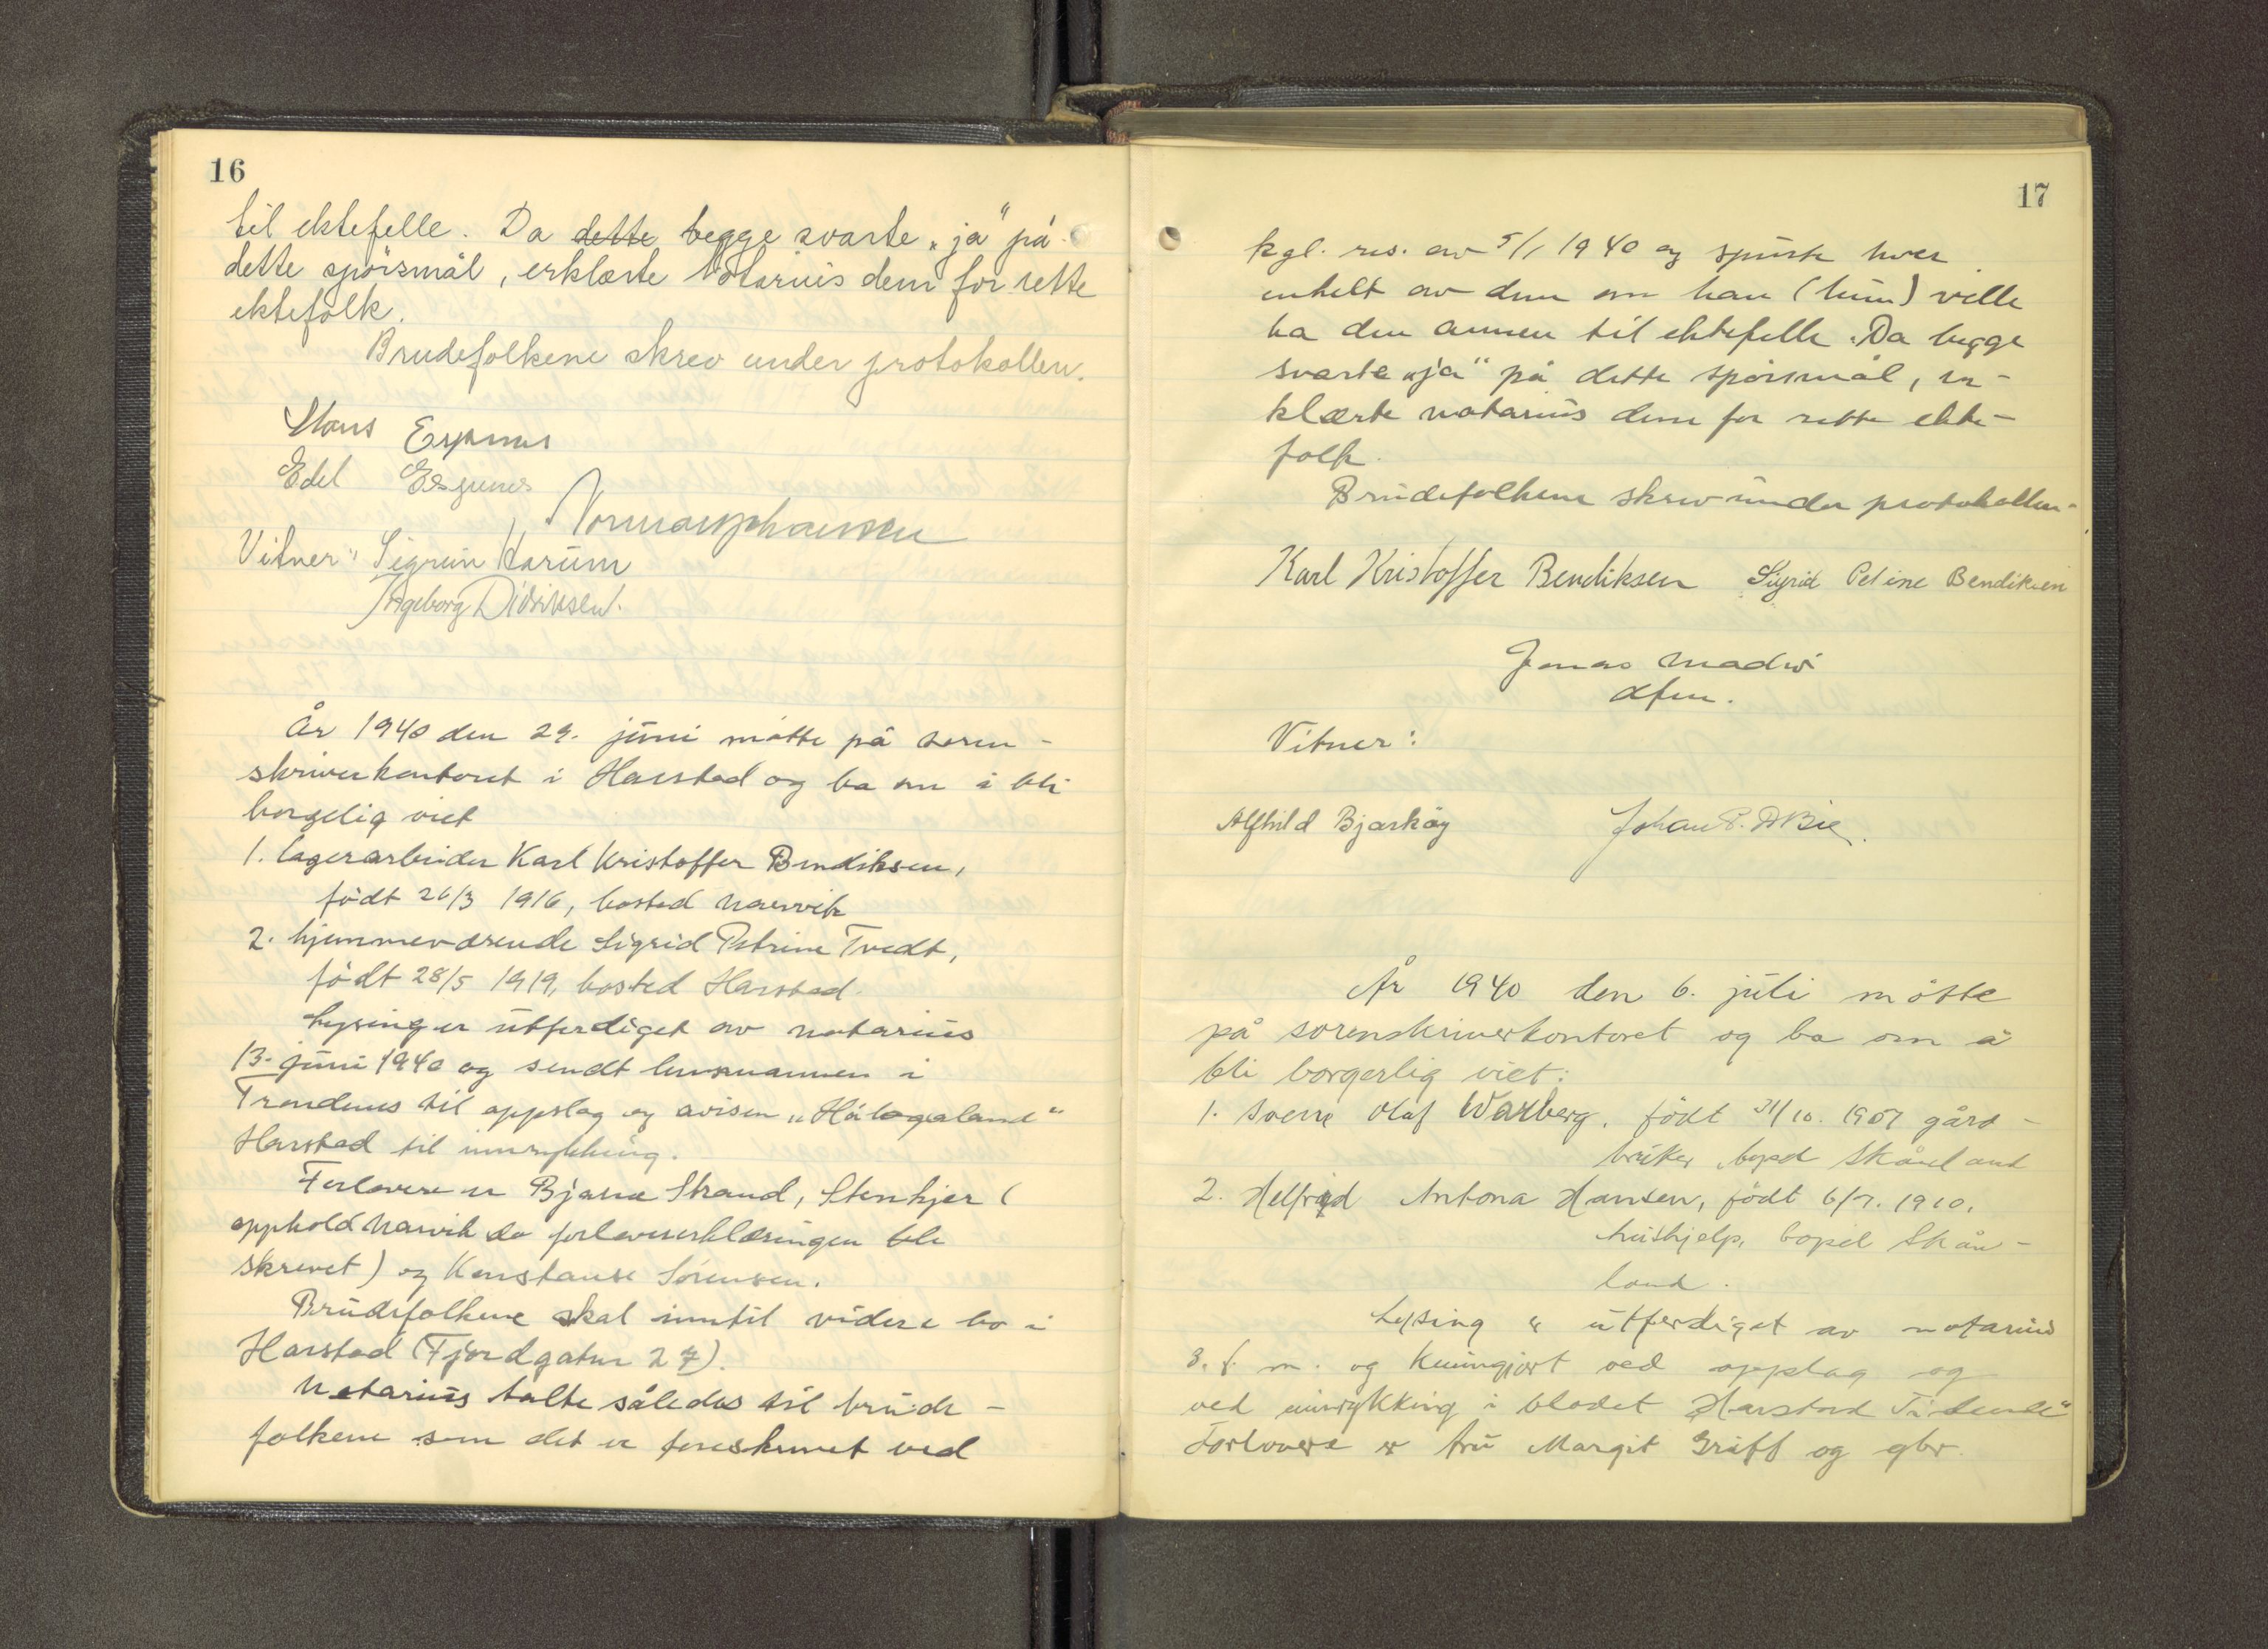 16
til ektefelle. Da dette begge svarte „ja" på
dette spørsmål, erklærte Notarius dem for rette
ektefolk.
Brudefolkene skrev under protokollen.
Hans Espenes
Edel Espenes
Vitner: Sigrun Harum
Ingeborg Didriksen.
År 1940 den 29. juni møtte på soren-
skriverkontoret i Harstad og ba om å bli
borgelig viet
1. lagerarbeider Karl Kristoffer Bendiksen,
født 26/3 1916, bosted Narvik
2. hjemmeværende Sigrid Petrine Tvedt,
født 28/5 1919, bosted Harstad.
Lysing er utferdiget av notarius
13. juni 1940 og sendt lensmannen i
Trondenes til oppslag og avisen „Hålogaland"
Harstad til innrykking.
Forlovere er Bjarne Strand, Stenkjer (
opphold Narvik da forlovererklæringen ble
skrevet) og Konstanse Sørensen.
Brudefolkene skal inntil videre bo i
Harstad (Fjordgaten 27).
Notarius talte således til brude-
folkene som det er foreskrevet ved
17
kgl. res. av 5/1 1940 og spurte hver
enkelt av dem om han (hun) ville
ha den annen til ektefelle. Da begge
svarte „ja" på dette spørsmål, er-
klærte notarius dem for rette ekte-
folk.
Brudefolkene skrev under protokollen.
Karl Kristoffer Bendiksen Sigrid Petrine Bendiksen
Jonas
dfm.
Vitner:
Alfhild Bjarkøy Johan
År 1940 den 6. juli møtte
på sorenskriverkontoret og ba om å
bli borgerlig viet:
1. Sverre Olaf Warberg, født 31/10. 1907 gård-
bruker, bopel Skånland
2. Helfrid Antona Hansen, født 6/7. 1910,
hushjelp, bopel Skån-
land.
Lysing er utferdiget av notarius
3. f. m. og kunngjort ved oppslag og
ved innrykking i bladet Harstad Tidende"
Forlovere er fru Margit Greiff og gbr.